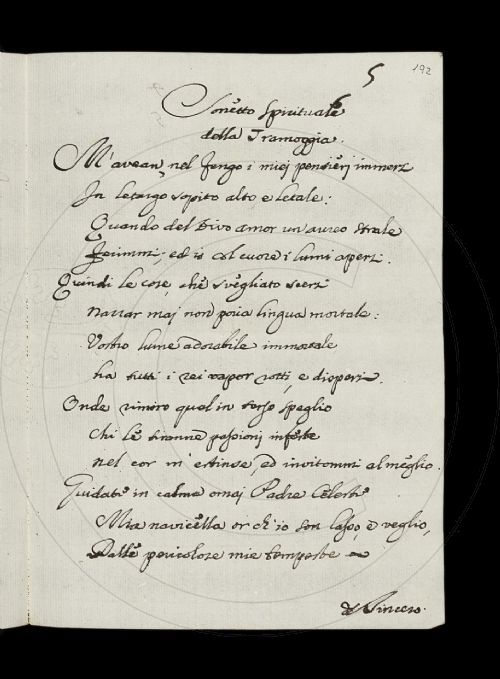 192
5
Sonetto Spirituale
della Tramoggia.
M'avean, nel fango i miej pensierj immersi
In letargo sopito alto e letale:
Quando del Divo Amor un' aureo strale
Ferimmi; ed io al cuore i lumi apersi.
Quindi le cose, chè svegliato scersi
Narrar maj non poria lingua mortale:
Vostro lume adorabile immortale
ha tutti i rei vapor rotti, e dispersi.
Onde rimiro qual in terso speglio
Chi lè tiranne passionj infeste
nel cor m'estinse, ed invitommi al meglio.
Guidate in calma omaj Padre Celeste
Mia navicella or ch'io son lasso, e veglio,
Dallè pericolose mie tempeste
Sincero.